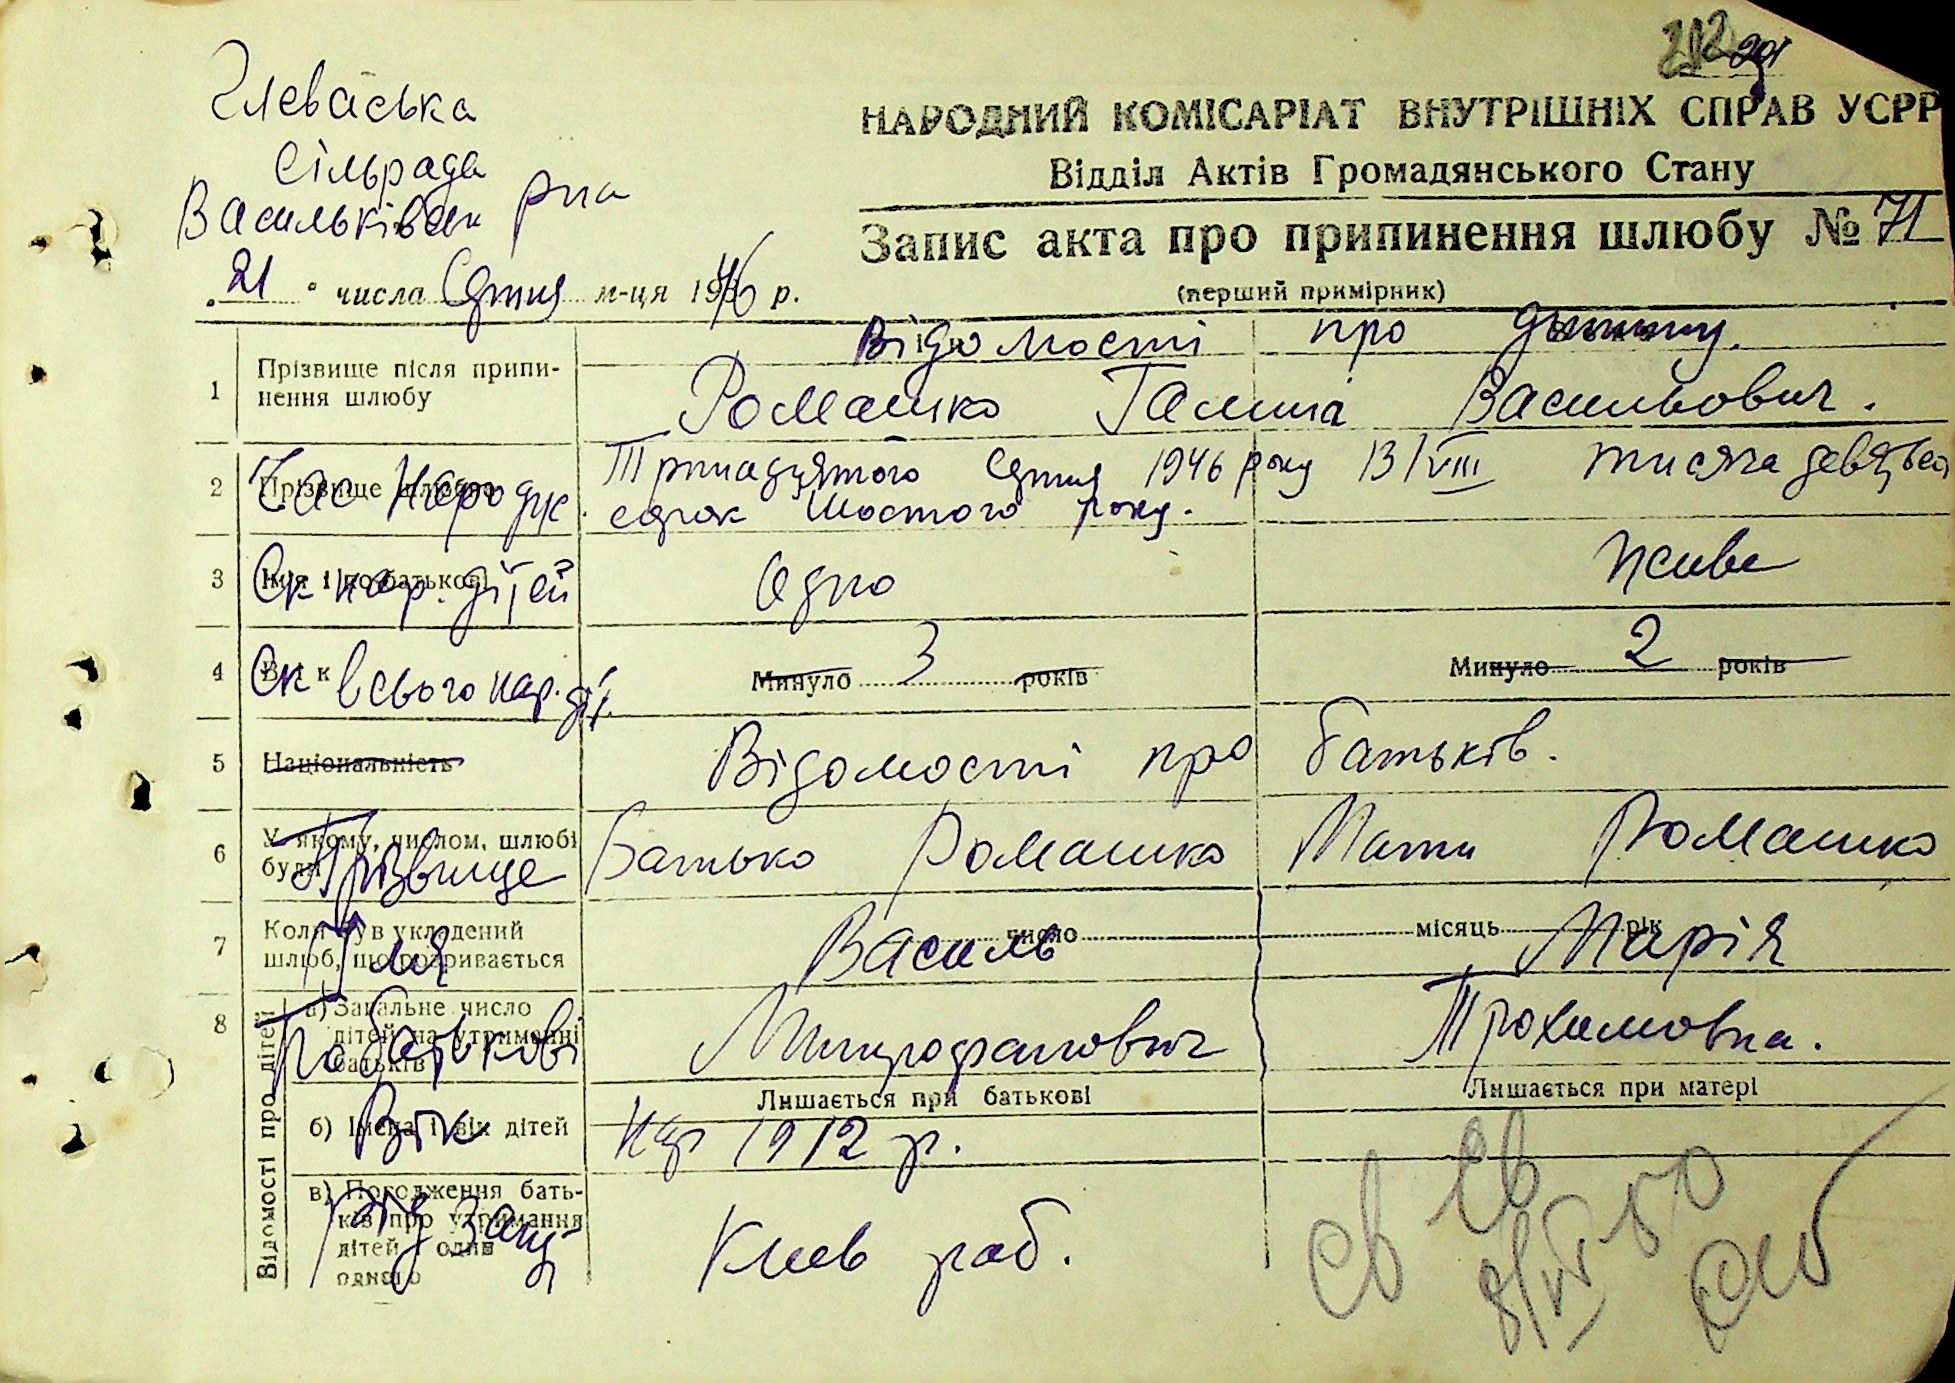 212
291
Глеваська
сільрада
Васильківськ р-на
НАРОДНИЙ КОМІСАРІАТ ВНУТРІШНІХ СПРАВ УСРР
Відділ Актів Громадянського Стану
Запис акта про припинення шлюбу № 71
(перший примірник)
„21“ числа Серпня м-ця 1946 р.
Відомості про дитину.
1 Прізвище після припинення шлюбу
Ромашко Галина Васильович.
2 Прізвище
Час народж. Тринадцятого Серпня 1946 року 13/VIII тисяча девятьсот
сорок шостого року.
3 Імя і по батькові
Ск нар. дітей Одно Живе
4 Вік
Ск всього нар. діт. Минуло 3 років Минуло 2 років
5 Національність Відомості про батьків.
6 У якому, числом, шлюбі були
Прізвище Батько Ромашко Мати Ромашко
7 Коли був укладений шлюб, що розривається
число місяць рік
Імя Василь Марія
Відомості про дітей
8 а) Загальне число дітей на утриманні батьків
По батькові Митрофанович Трохимовна.
Лишається при батькові Лишається при матері
б) Імена і вік дітей
Вік нар 1912 р.
в) Погодження батьків про утримання дітей і один одного
Рід занят Киев раб.
св св
8/VI 50